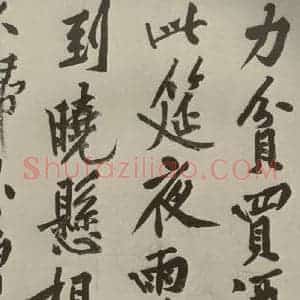 力貧買酒
此筵夜雨
到曉懸
Shufaziliao.com